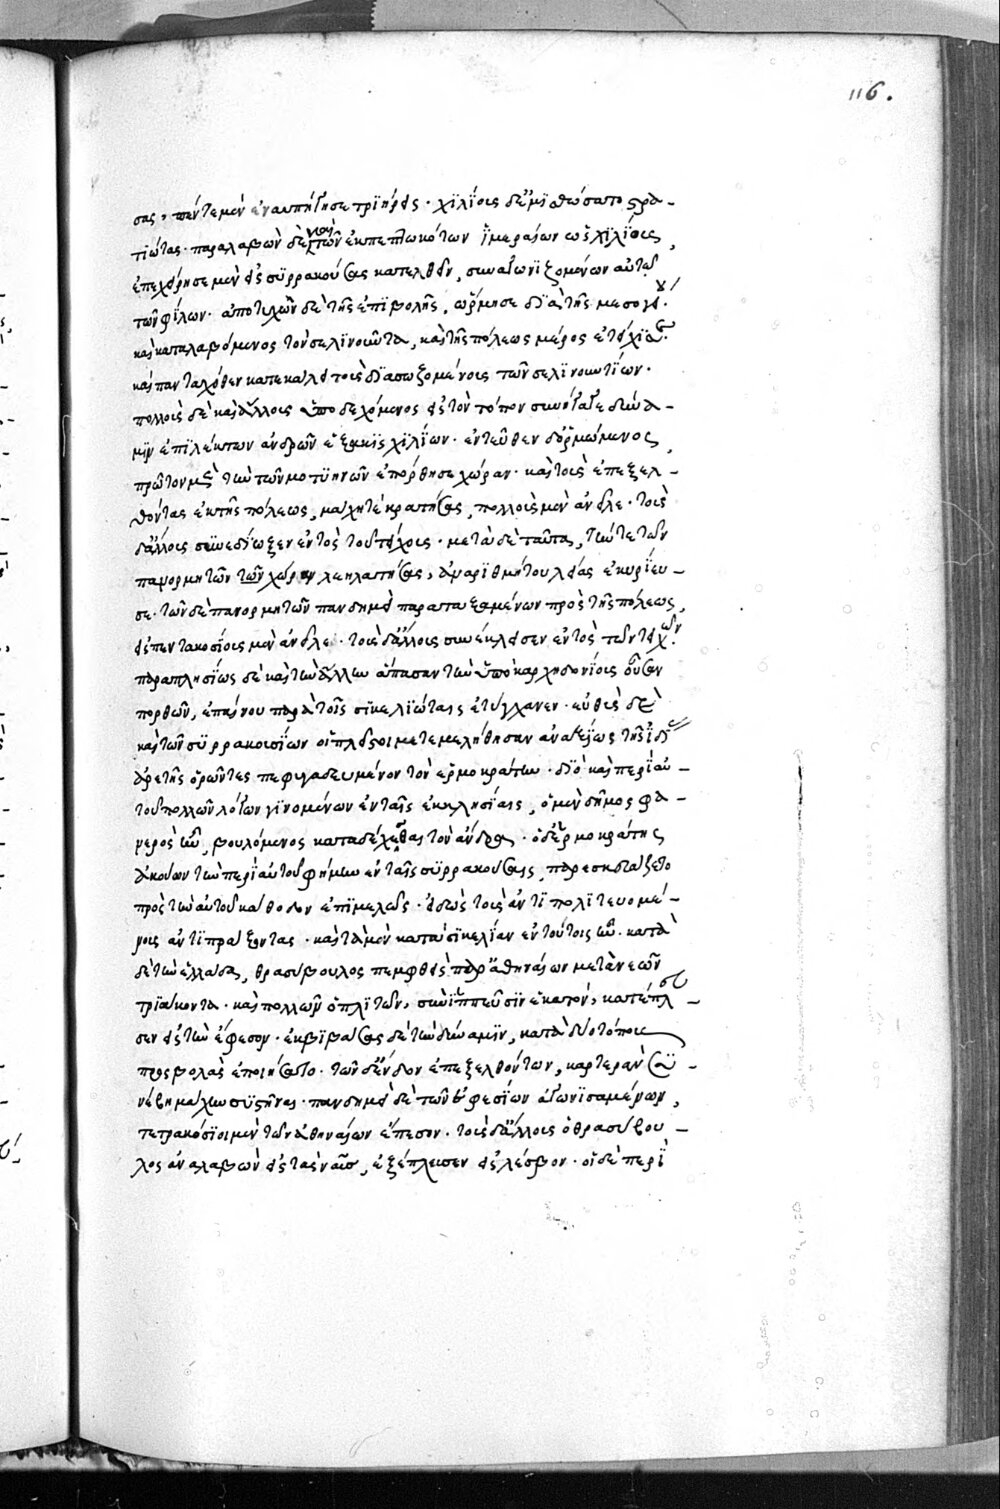 116.
σας, πέντε μὲν ἐναυπήγησε τριήρεις· χιλίους δ' ἐμισθώσατο στρα-
τιώτας· παραλαβὼν δὲ καὶ τῶν ἐκπεπτωκότων ἱμεραίων ὡς χιλίους,
ἐπεχείρησε μὲν εἰς συρρακούσας κατελθεῖν, συναγωνιζομένων αὐτῶ
τῶν φίλων· ἀποτυχὼν δὲ τῆς ἐπιβολῆς, ὥρμησε διὰ τῆς μεσογείου·
καὶ καταλαβόμενος τὸν σελινοῦντα, καὶ τῆς πόλεως μέρος ἐτείχισε·
καὶ πανταχόθεν κατεκάλει τοὺς διασωζομένους τῶν σελινουντίων·
πολλοὺς δὲ καὶ ἄλλους ὑποδεχόμενος εἰς τὸν τόπον συνήγαγε δύνα-
μιν ἐπιλέκτων ἀνδρῶν ἑξακισχιλίων· ἐντεῦθεν δ' ὁρμώμενος,
πρῶτον μὲν τὴν τῶν μοτυηνῶν ἐπόρθησε χώραν· καὶ τοὺς ἐπεξελ-
θόντας ἐκ τῆς πόλεως, μάχη τε κρατήσας, πολλοὺς μὲν ἀνεῖλε· τοὺς
δ' ἄλλους συνεδίωξεν ἐντὸς τοῦ τείχους· μετὰ δὲ ταῦτα, τήν τε τῶν
πανορμητῶν τῶν χώραν λεηλατήσας, ἀναριθμήτου λείας ἐκυρίευ-
σε· τῶν δὲ πανορμητῶν πανδημεὶ παραταξαμένων πρὸς τῆς πόλεως,
εἰς πεντακοσίους μὲν ἀνεῖλε· τοὺς δ' ἄλλους συνέκλεισεν ἐντὸς τῶν τειχῶν·
παραπλησίως δὲ καὶ τὴν ἄλλην ἅπασαν τὴν ὑπὸ καρχηδονίους οὖσαν
πορθῶν, ἐπαίνου παρὰ τοῖς σικελιώταις ἐτύγχανεν· εὐθὺς δὲ
καὶ τῶν συρρακουσίων οἱ πλεῖστοι μετεμελήθησαν ἀναξίως τῆς ἰδίας
ἀρετῆς ὁρῶντες πεφυγαδευμένον τὸν ἑρμοκράτην· διὸ καὶ περὶ αὐ-
τοῦ πολλῶν λόγων γινομένων ἐν ταῖς ἐκκλησίαις, ὁ μὲν δῆμος φα-
νερὸς ἦν, βουλόμενος καταδέχεσθαι τὸν ἄνδρα· ὁ δ' ἑρμοκράτης
ἀκούων τὴν περὶ αὑτοῦ φήμην ἐν ταῖς συρρακούσαις, παρεσκευάζετο
πρὸς τὴν αὑτοῦ κάθοδον ἐπιμελῶς· εἰδὼς τοὺς ἀντιπολιτευομέ-
νους ἀντιπράξοντας· καὶ τὰ μὲν κατὰ σικελίαν ἐν τούτοις ἦν· κατὰ
δὲ τὴν ἑλλάδα, θρασύβουλος πεμφθεὶς παρ' ἀθηναίων μετὰ νεῶν
τριάκοντα· καὶ πολλῶν ὁπλιτῶν, σὺν ἱππεῦσιν ἑκατόν, κατέπλευ-
σεν εἰς τὴν ἔφεσον· ἐκβιβάσας δὲ τὴν δύναμιν, κατὰ δύο τόπους
προσβολὰς ἐποιήσατο· τῶν δ' ἔνδον ἐπεξελθόντων, καρτερὰν συ-
νέβη μάχην συστῆναι· πανδημεὶ δὲ τῶν ἐφεσίων ἀγωνισαμένων,
τετρακόσιοι μὲν τῶν ἀθηναίων ἔπεσον· τοὺς δ' ἄλλους ὁ θρασύβου-
λος ἀναλαβὼν εἰς τὰς ναῦς, ἐξέπλευσεν εἰς λέσβον· οἱ δὲ περὶ